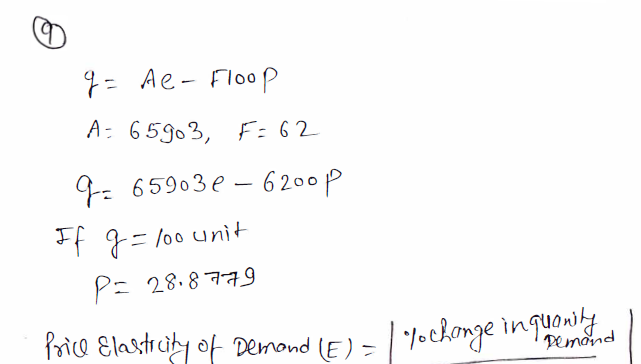 9
q = Ae - F100p
A = 65903, F = 62
q = 65903e - 6200p
If q = 100 unit
P = 28.8779
Price Elasticity of Demand (E) = | % change in quanity Demand |